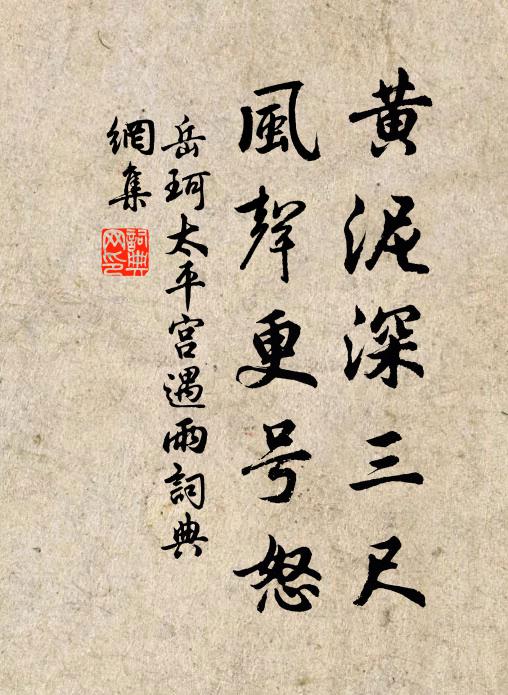 黄泥深三尺
風聲更号怒
岳珂太平宫遇雨詞典
網集
詞典
网印